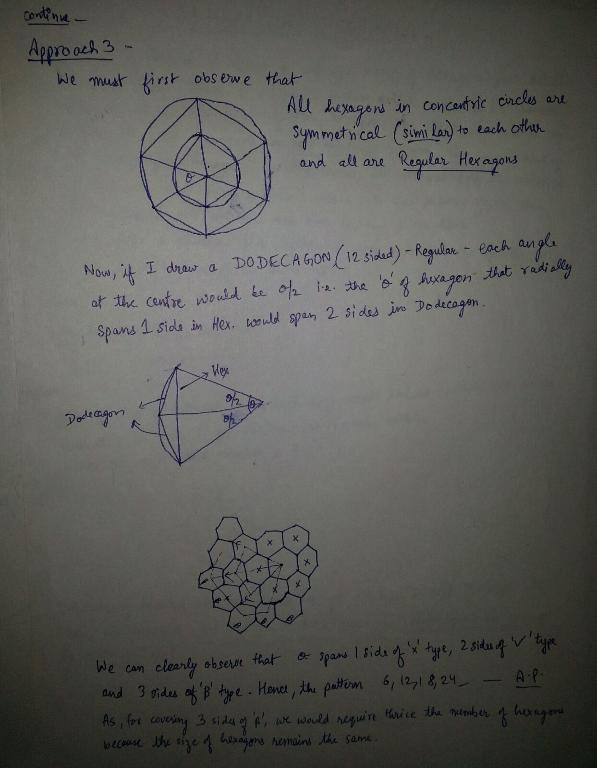 continue -
Approach 3 -
We must first observe that
All hexagons in concentric circles are
symmetrical (similar) to each other
and all are Regular Hexagons
θ
Now, if I draw a DODECAGON (12 sided) - Regular - each angle
at the centre would be θ/2 i.e. the 'θ' of hexagon that radially
spans 1 side in Hex. would span 2 sides in Dodecagon.
Hex
Dodecagon
θ/2 θ
θ/2
x x
x x
x x
We can clearly observe that θ spans 1 side of 'x' type, 2 sides of '✓' type
and 3 sides of 'β' type. Hence, the pattern 6, 12, 18, 24_ — A.P.
As, for covering 3 sides of 'β', we would require thrice the number of hexagons
because the size of hexagons remains the same.